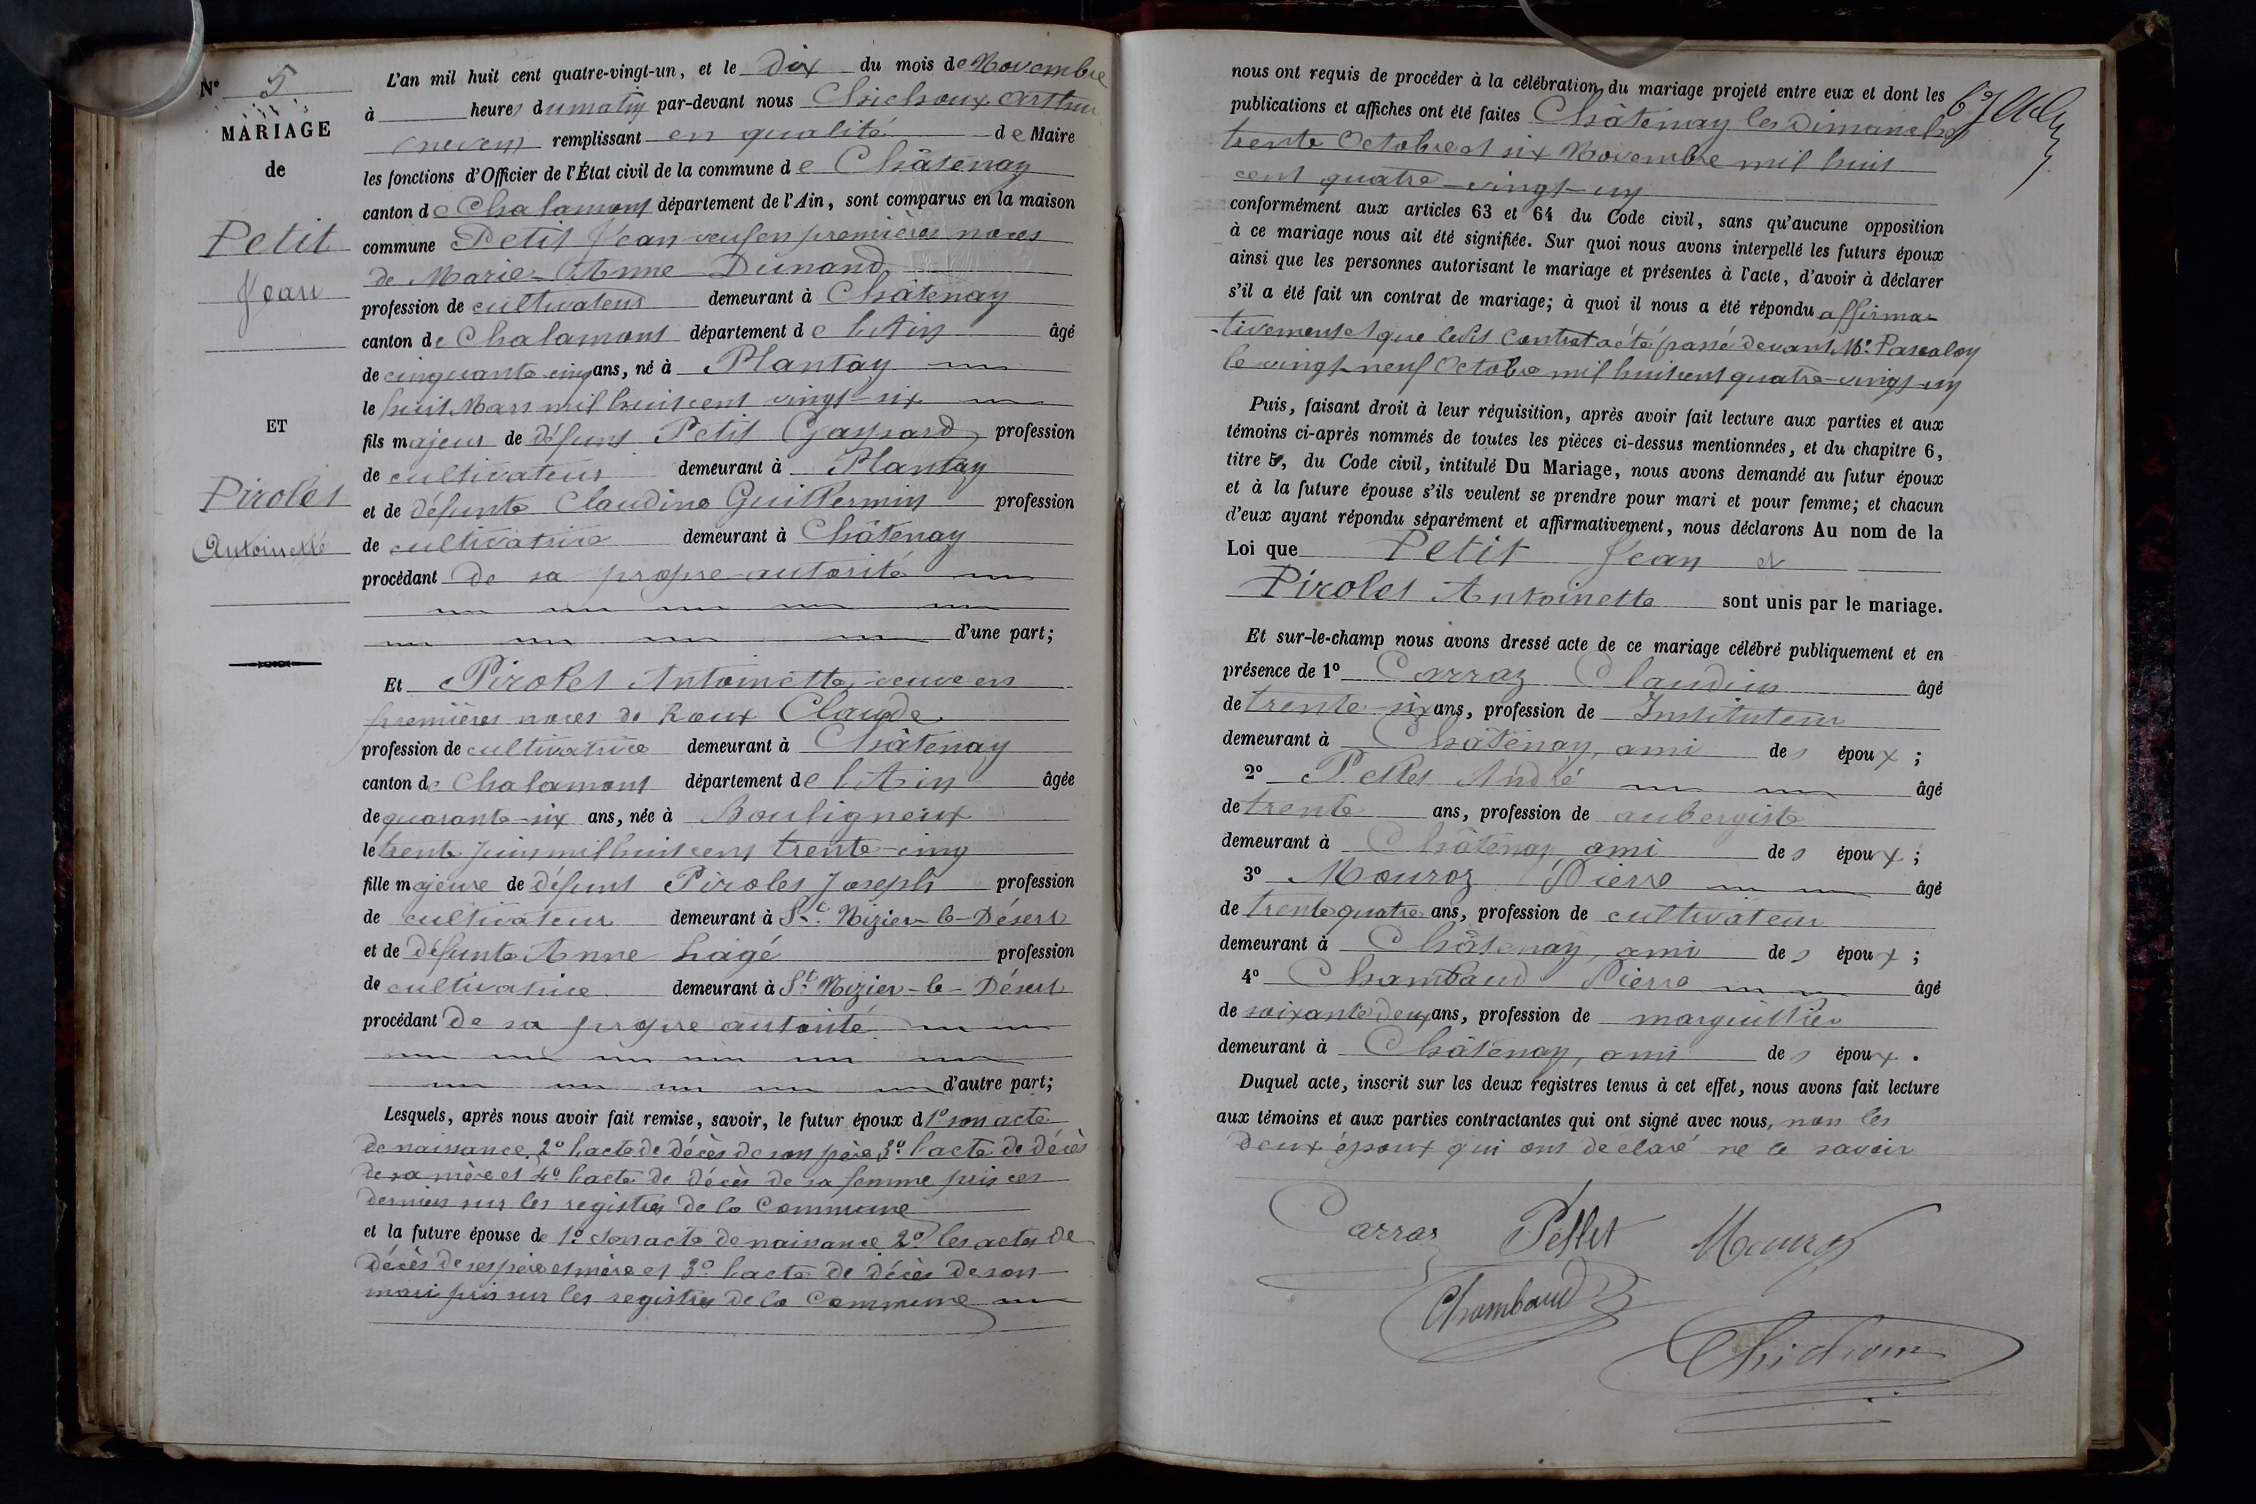 N° 5
MARIAGE
de
Petit
Jean
ET
Pirolet
Antoinette
L'an mil huit cent quatre-vingt-un, et le Dix du mois de Novembre
à heures du matin par-devant nous Chichoux Arthur
remplissant en qualité de Maire
les fonctions d'Officier de l'État civil de la commune de Châtenay
canton de Chalamont département de l'Ain, sont comparus en la maison
commune Petit Jean veuf en premières noces
de Marie-Anne Dunand
profession de cultivateur demeurant à Châtenay
canton de Chalamont département de l'Ain âgé
de cinquante cinq ans, né à Plantay
le huit Mars mil huit cent vingt-six
fils majeur de défunt Petit Gaspard profession
de cultivateur demeurant à Plantay
et de défunte Claudine Guillermin profession
de cultivatrice demeurant à Châtenay
procédant de sa propre autorité
d'une part;
Et Pirolet Antoinette veuve en
premières noces de Roux Claude
profession de cultivatrice demeurant à Châtenay
canton de Chalamont département de l'Ain âgée
de quarante-six ans, née à Bouligneux
le trente Juin mil huit cent trente-cinq
fille majeure de défunt Pirolet Joseph profession
de cultivateur demeurant à St. Nizier-le-Désert
et de défunte Anne profession
de cultivatrice demeurant à St. Nizier-le-Désert
procédant De sa propre autorité
d'autre part;
Lesquels, après nous avoir fait remise, savoir, le futur époux d 1° son acte
de naissance, 2° l'acte de décès de son père, 3° l'acte de décès
de sa mère et 4° l'acte de décès de sa femme pris ces
derniers sur les registres de la Commune
et la future épouse de 1° son acte de naissance 2° les actes de
décès de ses père et mère et 3° l'acte de décès de son
mari pris sur les registres de la Commune
nous ont requis de procéder à la célébration du mariage projeté entre eux et dont les
publications et affiches ont été faites Châtenay les Dimanches
trente Octobre et six Novembre mil huit
cent quatre-vingt-un
conformément aux articles 63 et 64 du Code civil, sans qu'aucune opposition
à ce mariage nous ait été signifiée. Sur quoi nous avons interpellé les futurs époux
ainsi que les personnes autorisant le mariage et présentes à l'acte, d'avoir à déclarer
s'il a été fait un contrat de mariage; à quoi il nous a été répondu affirma-
-tivement et que ledit Contrat a été passé devant Me
le vingt-neuf Octobre mil huit cent quatre-vingt-un
Puis, faisant droit à leur réquisition, après avoir fait lecture aux parties et aux
témoins ci-après nommés de toutes les pièces ci-dessus mentionnées, et du chapitre 6,
titre 5, du Code civil, intitulé Du Mariage, nous avons demandé au futur époux
et à la future épouse s'ils veulent se prendre pour mari et pour femme; et chacun
d'eux ayant répondu séparément et affirmativement, nous déclarons Au nom de la
Loi que Petit Jean et
Pirolet Antoinette sont unis par le mariage.
Et sur-le-champ nous avons dressé acte de ce mariage célébré publiquement et en
présence de 1° Carraz Claudius âgé
de trente-six ans, profession de Instituteur
demeurant à Châtenay, ami des époux;
2° Pellet André âgé
de trente ans, profession de aubergiste
demeurant à Châtenay ami des époux;
3° Mouroz Pierre âgé
de trente quatre ans, profession de cultivateur
demeurant à Châtenay, ami des époux;
4° Chambaud Pierre âgé
de soixante deux ans, profession de marguillier
demeurant à Châtenay, ami des époux.
Duquel acte, inscrit sur les deux registres tenus à cet effet, nous avons fait lecture
aux témoins et aux parties contractantes qui ont signé avec nous, non les
deux époux qui ont declaré ne le savoir
Carraz Pellet Mouroz
Chambaud
Chichoux